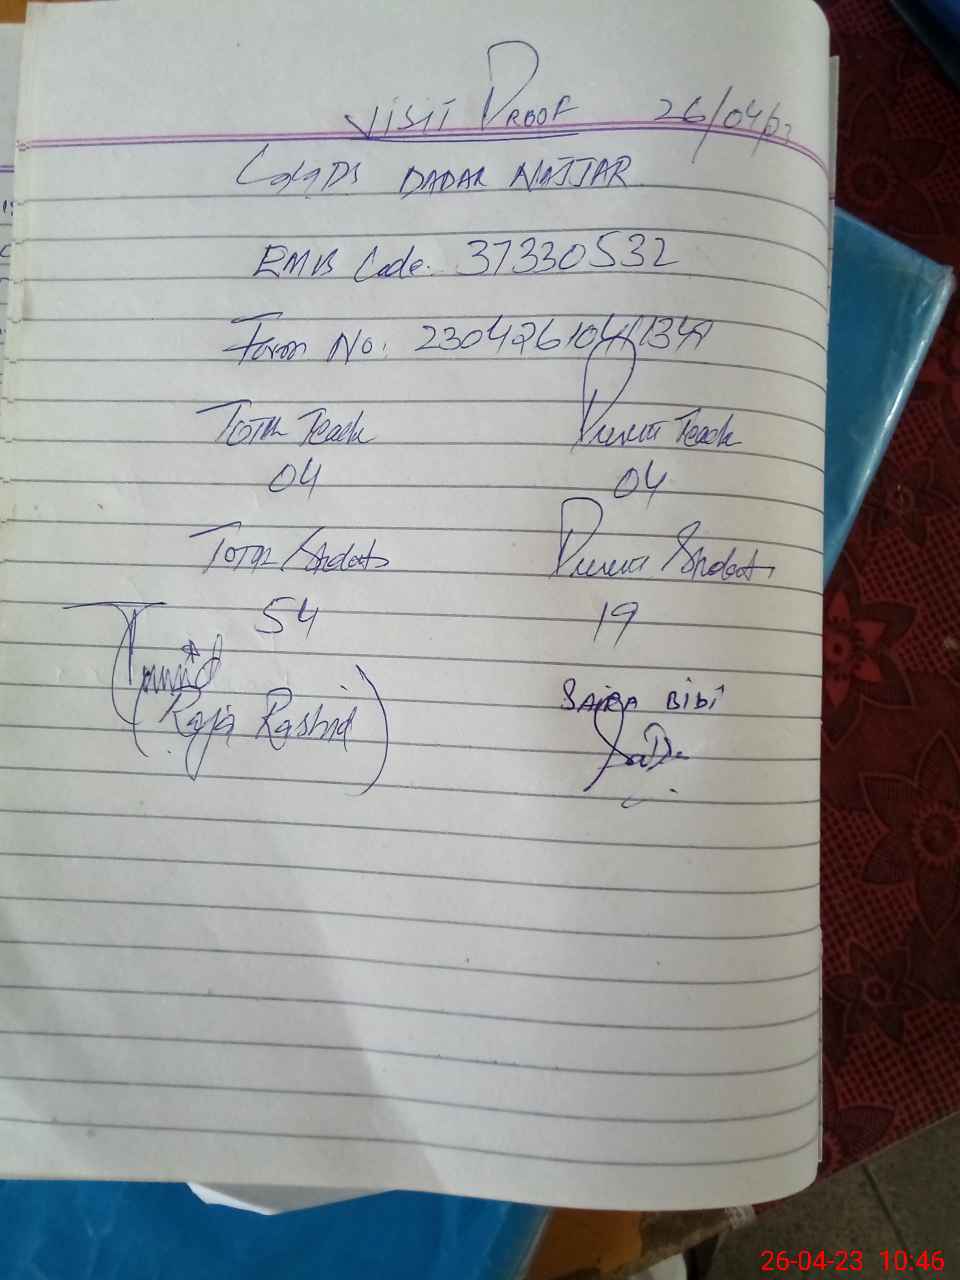 VISIT PROOF 26/04/23
GGPS DADAR NAJJAR
EMIS Code. 37330532
Form No:
Total Teach Present Teach
04 04
Total Students Present Students
54 19
(Raja Rashid) SAIRA BIBI
26-04-23 10:46